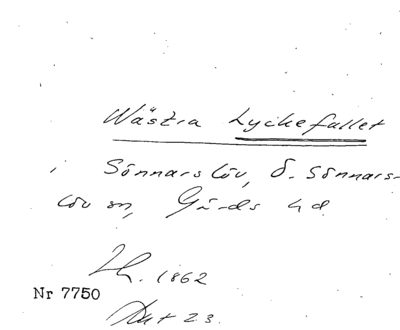 Wästra Lyckefallet
i Sönnarslöv, Ö. Sönnars-
löv sn, Gärds hd
Th. 1862
Nr 7750
Akt 23.